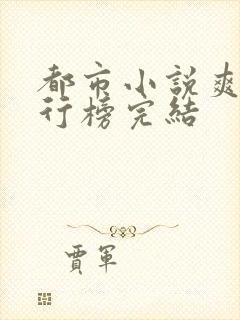 都市小說爽
行榜完結
賈軍